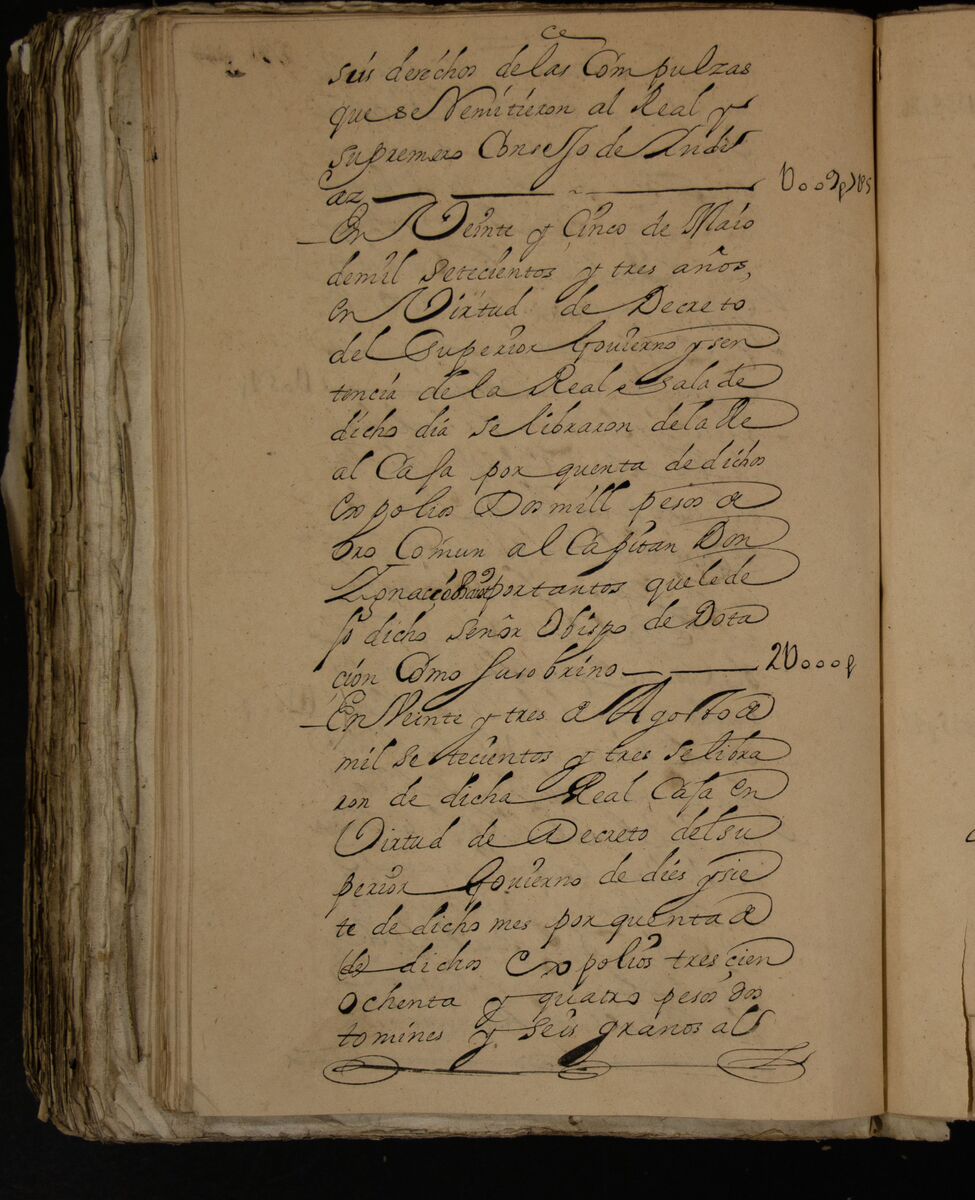 sus derechos de las Compulzas
que se Remitieron al Real y
supremero Consejo de Andi
az
En Veinte y Cinco de Maio
de mil setecientos y tres años,
en Virtud de Decreto
del Superior Gouierno y sen
tencia de la Real sala de
dicho dia se libraron de la Re
al Casa por quenta de dichos
Expolios Dos mill pesos de
Oro Comun al Capitan Don
Ygnacio por tantos que le de
jo dicho señor Obispo de Dota
cion Como su sobrino 2U000p
En Veinte y tres de Agosto de
mil setecientos y tres se libra
ron de dicha Real Casa en
Virtud de Decreto del su
perior Gouierno de dies y sie
te de dicho mes por quenta de
(de) dichos Expolios trescien
Ochenta y quatro pesos dos
tomines y seis granos al